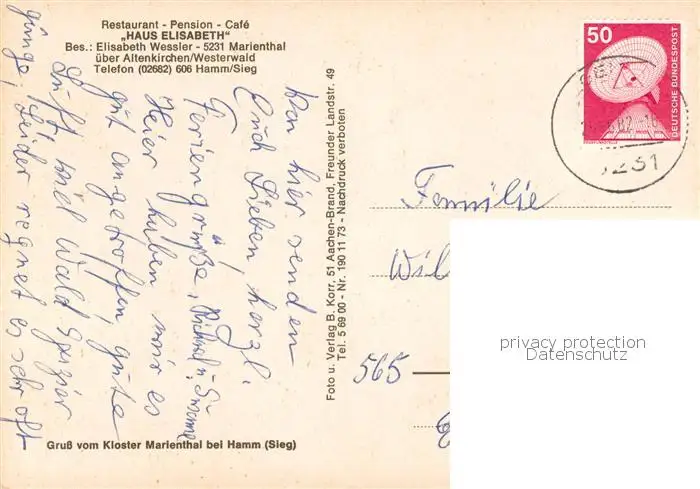 Restaurant - Pension - Café
„HAUS ELISABETH"
Bes.: Elisabeth Wessler - 5231 Marienthal
über Altenkirchen/Westerwald
Telefon (02682) 606 Hamm/Sieg
Von hier senden
Euch Lieben, herzl.
Feriengrüße,
Hier haben wir es
gut angetroffen, gute
Luft viel Wald Spazier
gänge, leider regnet es sehr oft
Gruß vom Kloster Marienthal bei Hamm (Sieg)
Foto u. Verlag B. Korr, 51 Aachen-Brand, Freunder Landstr. 49
Tel. 5 69 00 - Nr. 190 11 73 - Nachdruck verboten
50
DEUTSCHE BUNDESPOST
Familie
Wil
565
privacy protection
Datenschutz